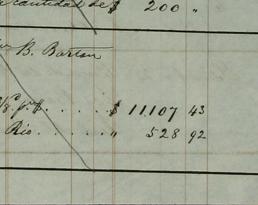 cantidad de $ 200 "
B. Barton
$ 11,107 43
Rio " 528 92